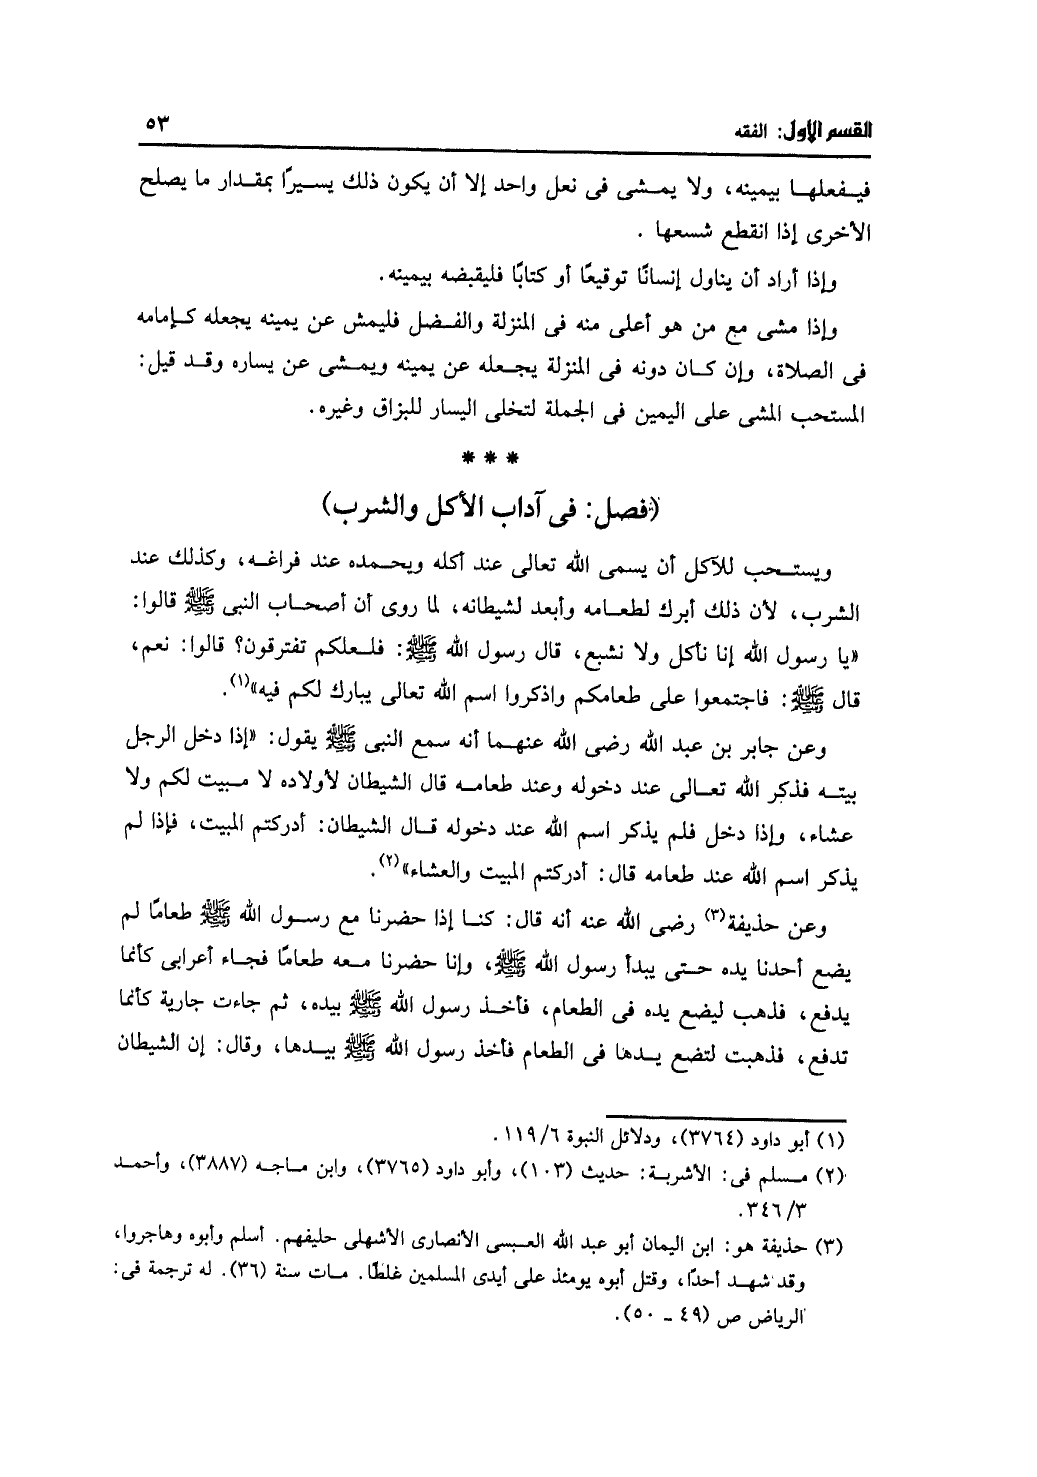 القسم الأول: الفقه ٥٣
فيفعلها بيمينه، ولا يمشى فى نعل واحد إلا أن يكون ذلك يسيرًا بمقدار ما يصلح
الأخرى إذا انقطع شسعها .
وإذا أراد أن يناول إنسانًا توقيعًا أو كتابًا فليقبضه بيمينه.
وإذا مشى مع من هو أعلى منه فى المنزلة والفضل فليمش عن يمينه يجعله كإمامه
فى الصلاة، وإن كان دونه فى المنزلة يجعله عن يمينه ويمشى عن يساره وقد قيل:
المستحب المشى على اليمين فى الجملة لتخلى اليسار للبزاق وغيره.
* * *
(فصل: فى آداب الأكل والشرب)
ويستحب للآكل أن يسمى الله تعالى عند أكله ويحمده عند فراغه، وكذلك عند
الشرب، لأن ذلك أبرك لطعامه وأبعد لشيطانه، لما روى أن أصحاب النبى ﷺ قالوا:
«يا رسول الله إنا نأكل ولا نشبع، قال رسول الله ﷺ: فلعلكم تفترقون؟ قالوا: نعم،
قال ﷺ: فاجتمعوا على طعامكم واذكروا اسم الله تعالى يبارك لكم فيه»(١).
وعن جابر بن عبد الله رضى الله عنهما أنه سمع النبى ﷺ يقول: «إذا دخل الرجل
بيته فذكر الله تعالى عند دخوله وعند طعامه قال الشيطان لأولاده لا مبيت لكم ولا
عشاء، وإذا دخل فلم يذكر اسم الله عند دخوله قال الشيطان: أدركتم المبيت، فإذا لم
يذكر اسم الله عند طعامه قال: أدركتم المبيت والعشاء»(٢).
وعن حذيفة(٣) رضى الله عنه أنه قال: كنا إذا حضرنا مع رسول الله ﷺ طعامًا لم
يضع أحدنا يده حتى يبدأ رسول الله ﷺ، وإنا حضرنا معه طعامًا فجاء أعرابى كأنما
يدفع، فذهب ليضع يده فى الطعام، فأخذ رسول الله ﷺ بيده، ثم جاءت جارية كأنما
تدفع، فذهبت لتضع يدها فى الطعام فأخذ رسول الله ﷺ بيدها، وقال: إن الشيطان
(١) أبو داود (٣٧٦٤)، ودلائل النبوة ٦/ ١١٩.
(٢) مسلم فى: الأشربة: حديث (١٠٣)، وأبو داود (٣٧٦٥)، وابن ماجه (٣٨٨٧)، وأحمد
٣/ ٣٤٦.
(٣) حذيفة هو: ابن اليمان أبو عبد الله العبسى الأنصارى الأشهلى حليفهم. أسلم وأبوه وهاجروا،
وقد شهد أحدًا، وقتل أبوه يومئذ على أيدى المسلمين غلطًا. مات سنة (٣٦). له ترجمة فى:
الرياض ص (٤٩ - ٥٠).